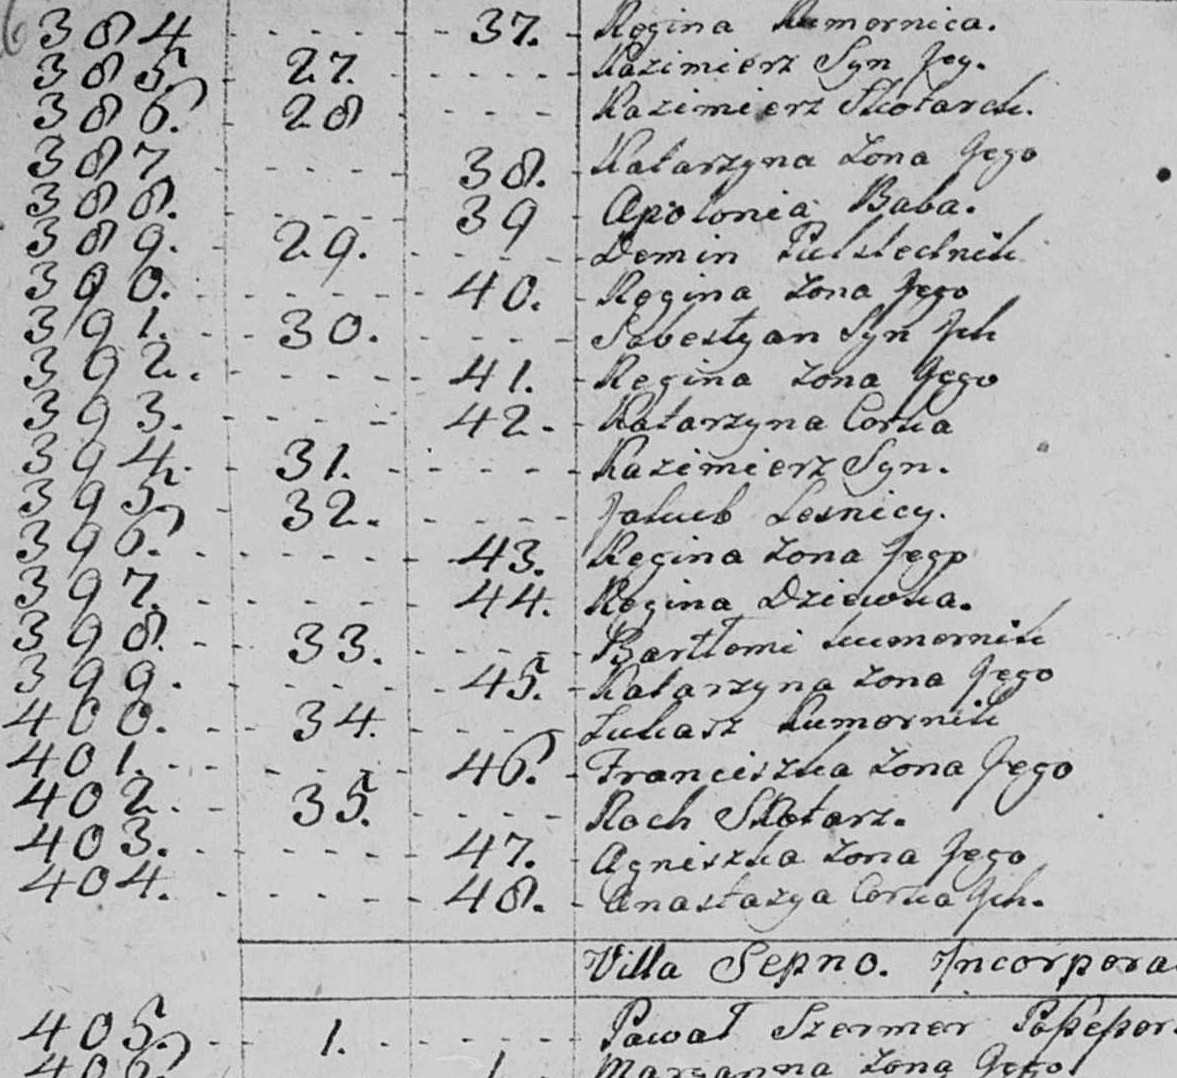 384 - - - - - 37. - Regina Kumornica.
385. - 27. - - - - - Kazimierz Syn Jeg.
386. - 28 - - - - Kazimierz Skotarek.
387 - - - - - 38. Katarzyna Zona Jego
388. - - - - - 39 - Apolonia Baba.
389. - 29. - - - - - Demin
390. - - - - - - 40. - Regina Zona Jego
391. - - 30. - - - - Sobestyan Syn Jch
392. - - - - - 41. - Regina Zona Jego
393. - - - - - 42. - Katarzyna Corka
394. - 31. - - - - - Kazimierz Syn.
395. - 32. - - - - Jakub Lesnicy.
396. - - - - - - 43. Regina Zona Jego
397. - - - - - 44. Regina Dziewka.
398. - - 33. - - - - Bartłomi kumornik
399. - - - - - 45. - Katarzyna Zona Jego
400. - - 34. - - - - Łukasz kumornik
401. - - - - - 46. - Franciszka Zona Jego
402. - - 35. - - - - Roch Skotarz.
403. - - - - - 47. - Agniszka Zona Jego
404. - - - - - 48. - Anastazya Corka Jch.
Villa Sepno. Jncorpora
405. - - 1. - - - - - Pawał Szermer
406. 1. Maryanna Zona Jego